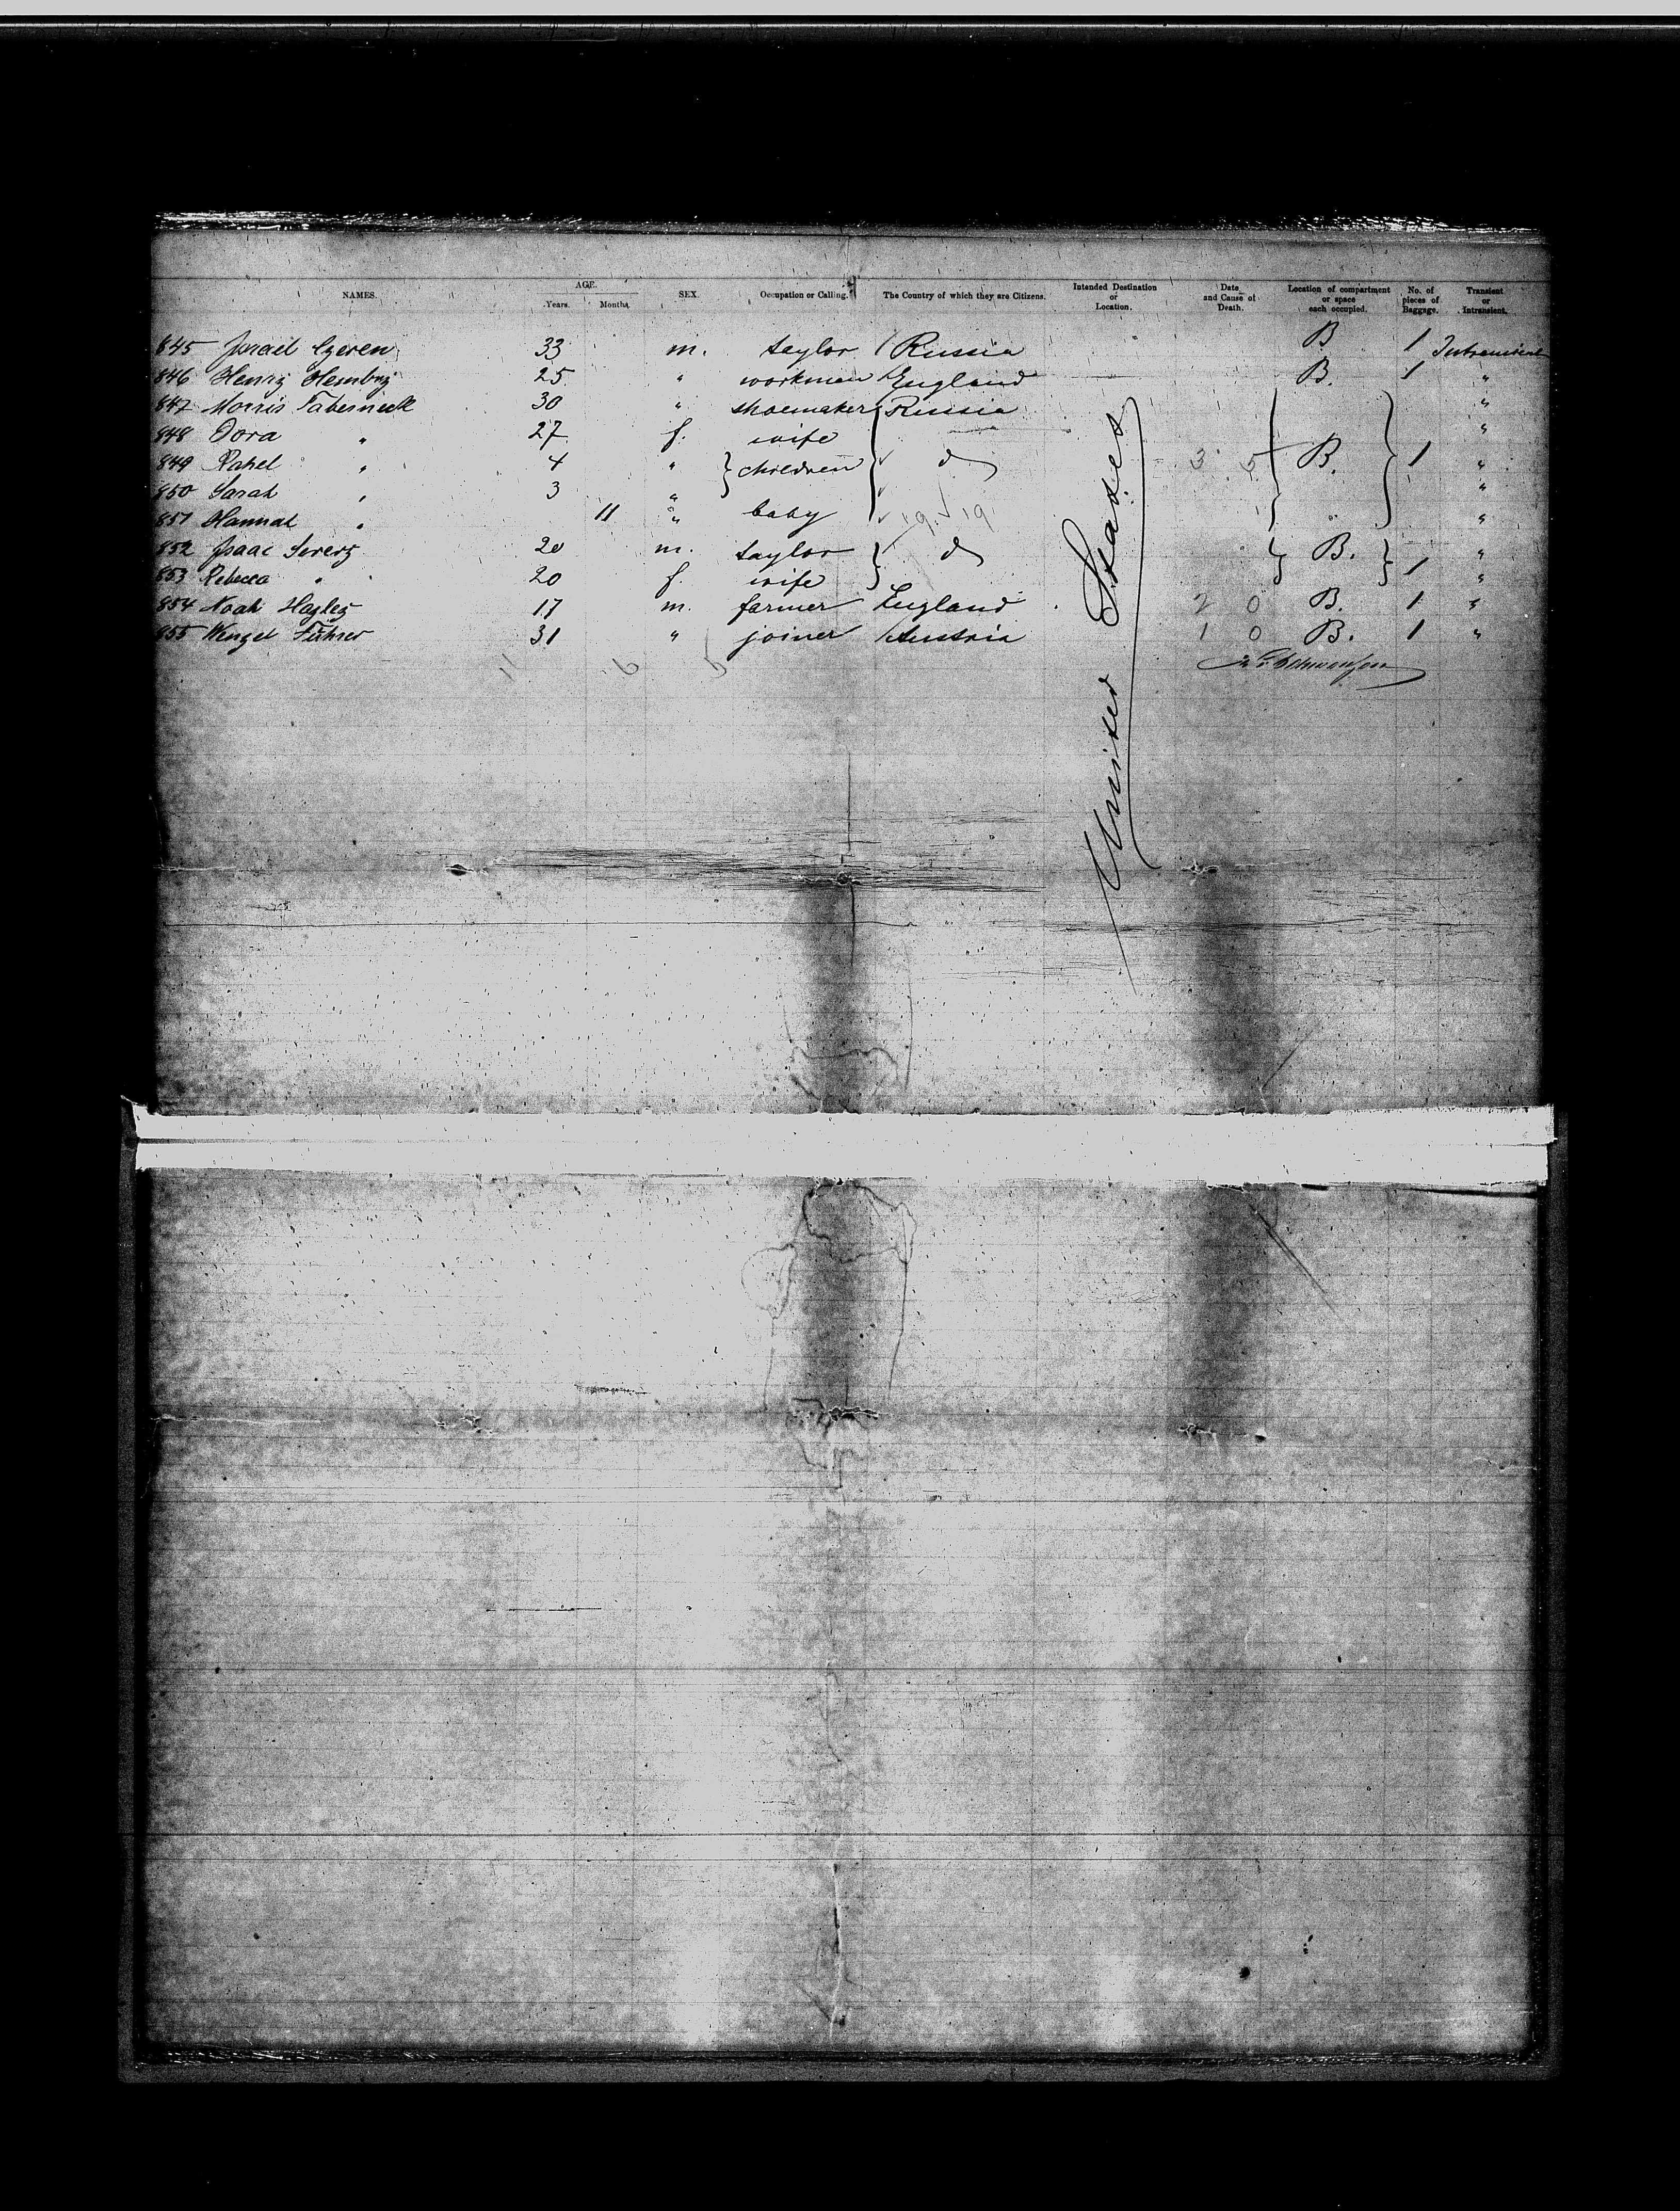 NAMES. AGE. Years. Months. SEX. Occupation or Calling. The Country of which they are Citizens. Intended Destination or Location. Date and Cause of Death. Location of compartment or space each occupied. No. of pieces of Baggage. Transient or Intransient.
845 Israel Czeren 33 m. taylor Russia B 1 Intransient
846 Henry 25 " workman England B. 1 "
847 Morris Taberneck 30 " shoemaker Russia "
848 Dora " 27 f. wife "
849 Rahel " 4 " children do 3 5 B. 1 "
850 Sarah " 3 " "
851 Hannah " 11 " baby 19 19 "
852 Isaac 20 m. taylor do B. "
853 Rebecca " 20 f. wife 1 "
854 Noah Hagley 17 m. farmer England 2 0 B. 1 "
855 Wenzel Führer 31 " joiner Austria 1 0 B. 1 "
11 6 5
United States